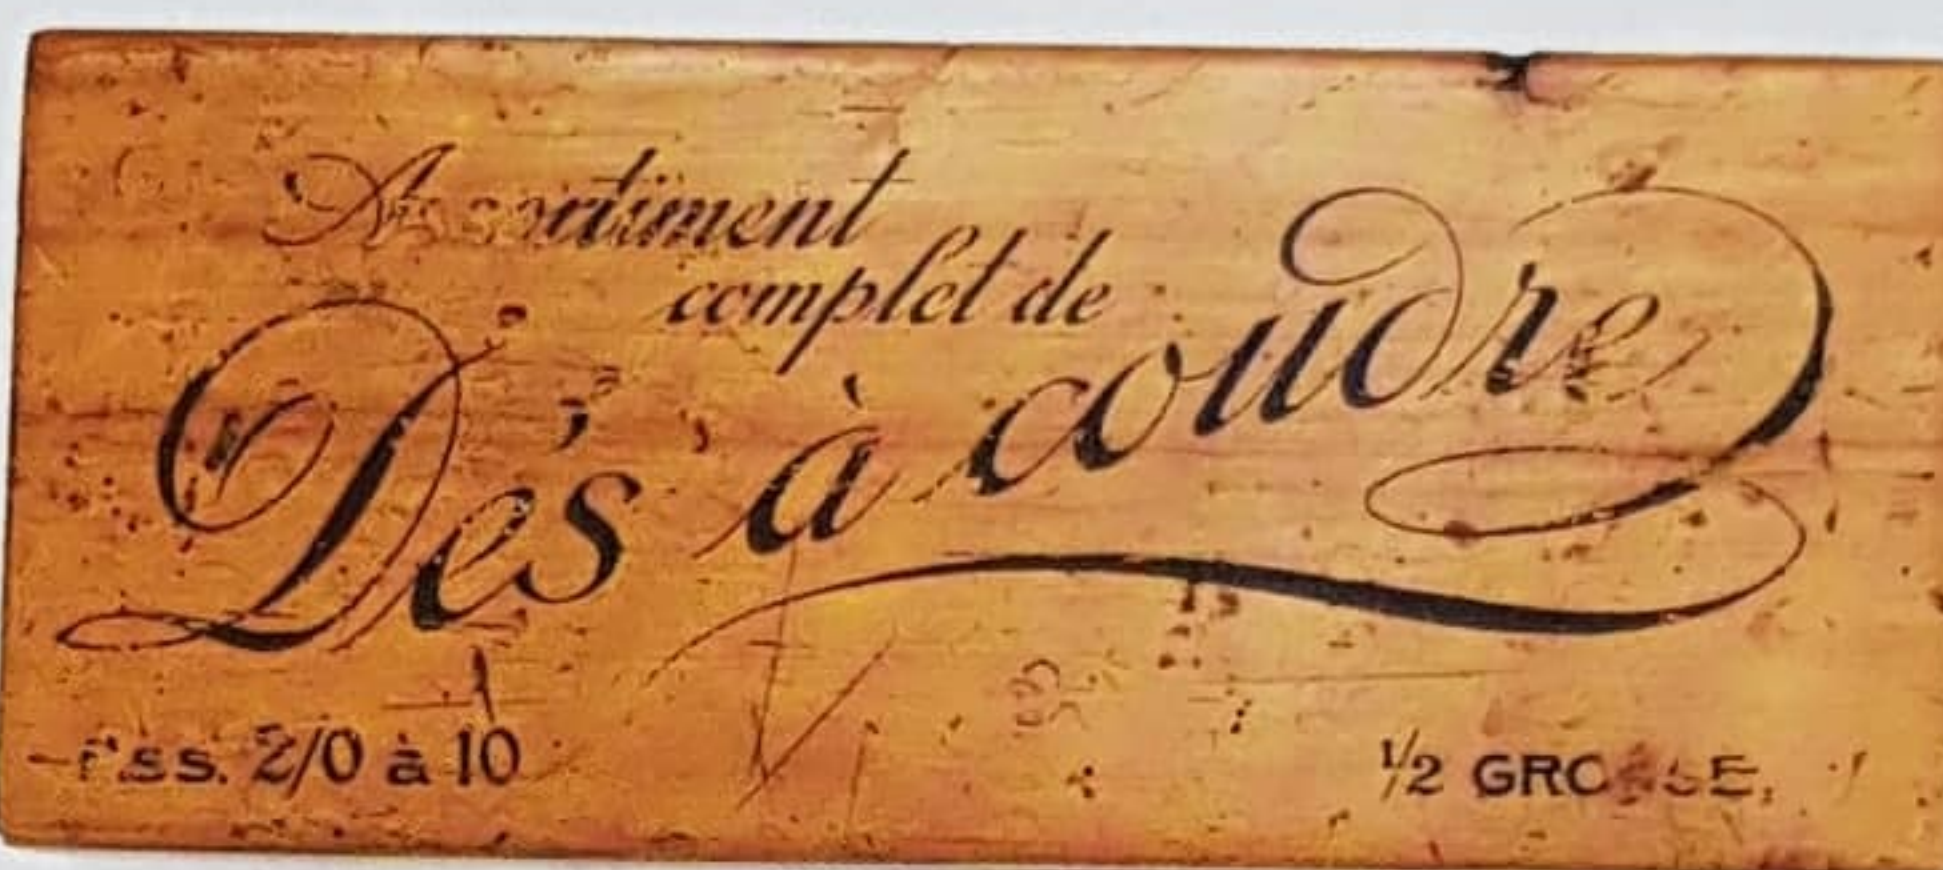 Assortiment
complet de
Dés à coudre
Ass. 2/0 à 10
1/2 GROSSE.